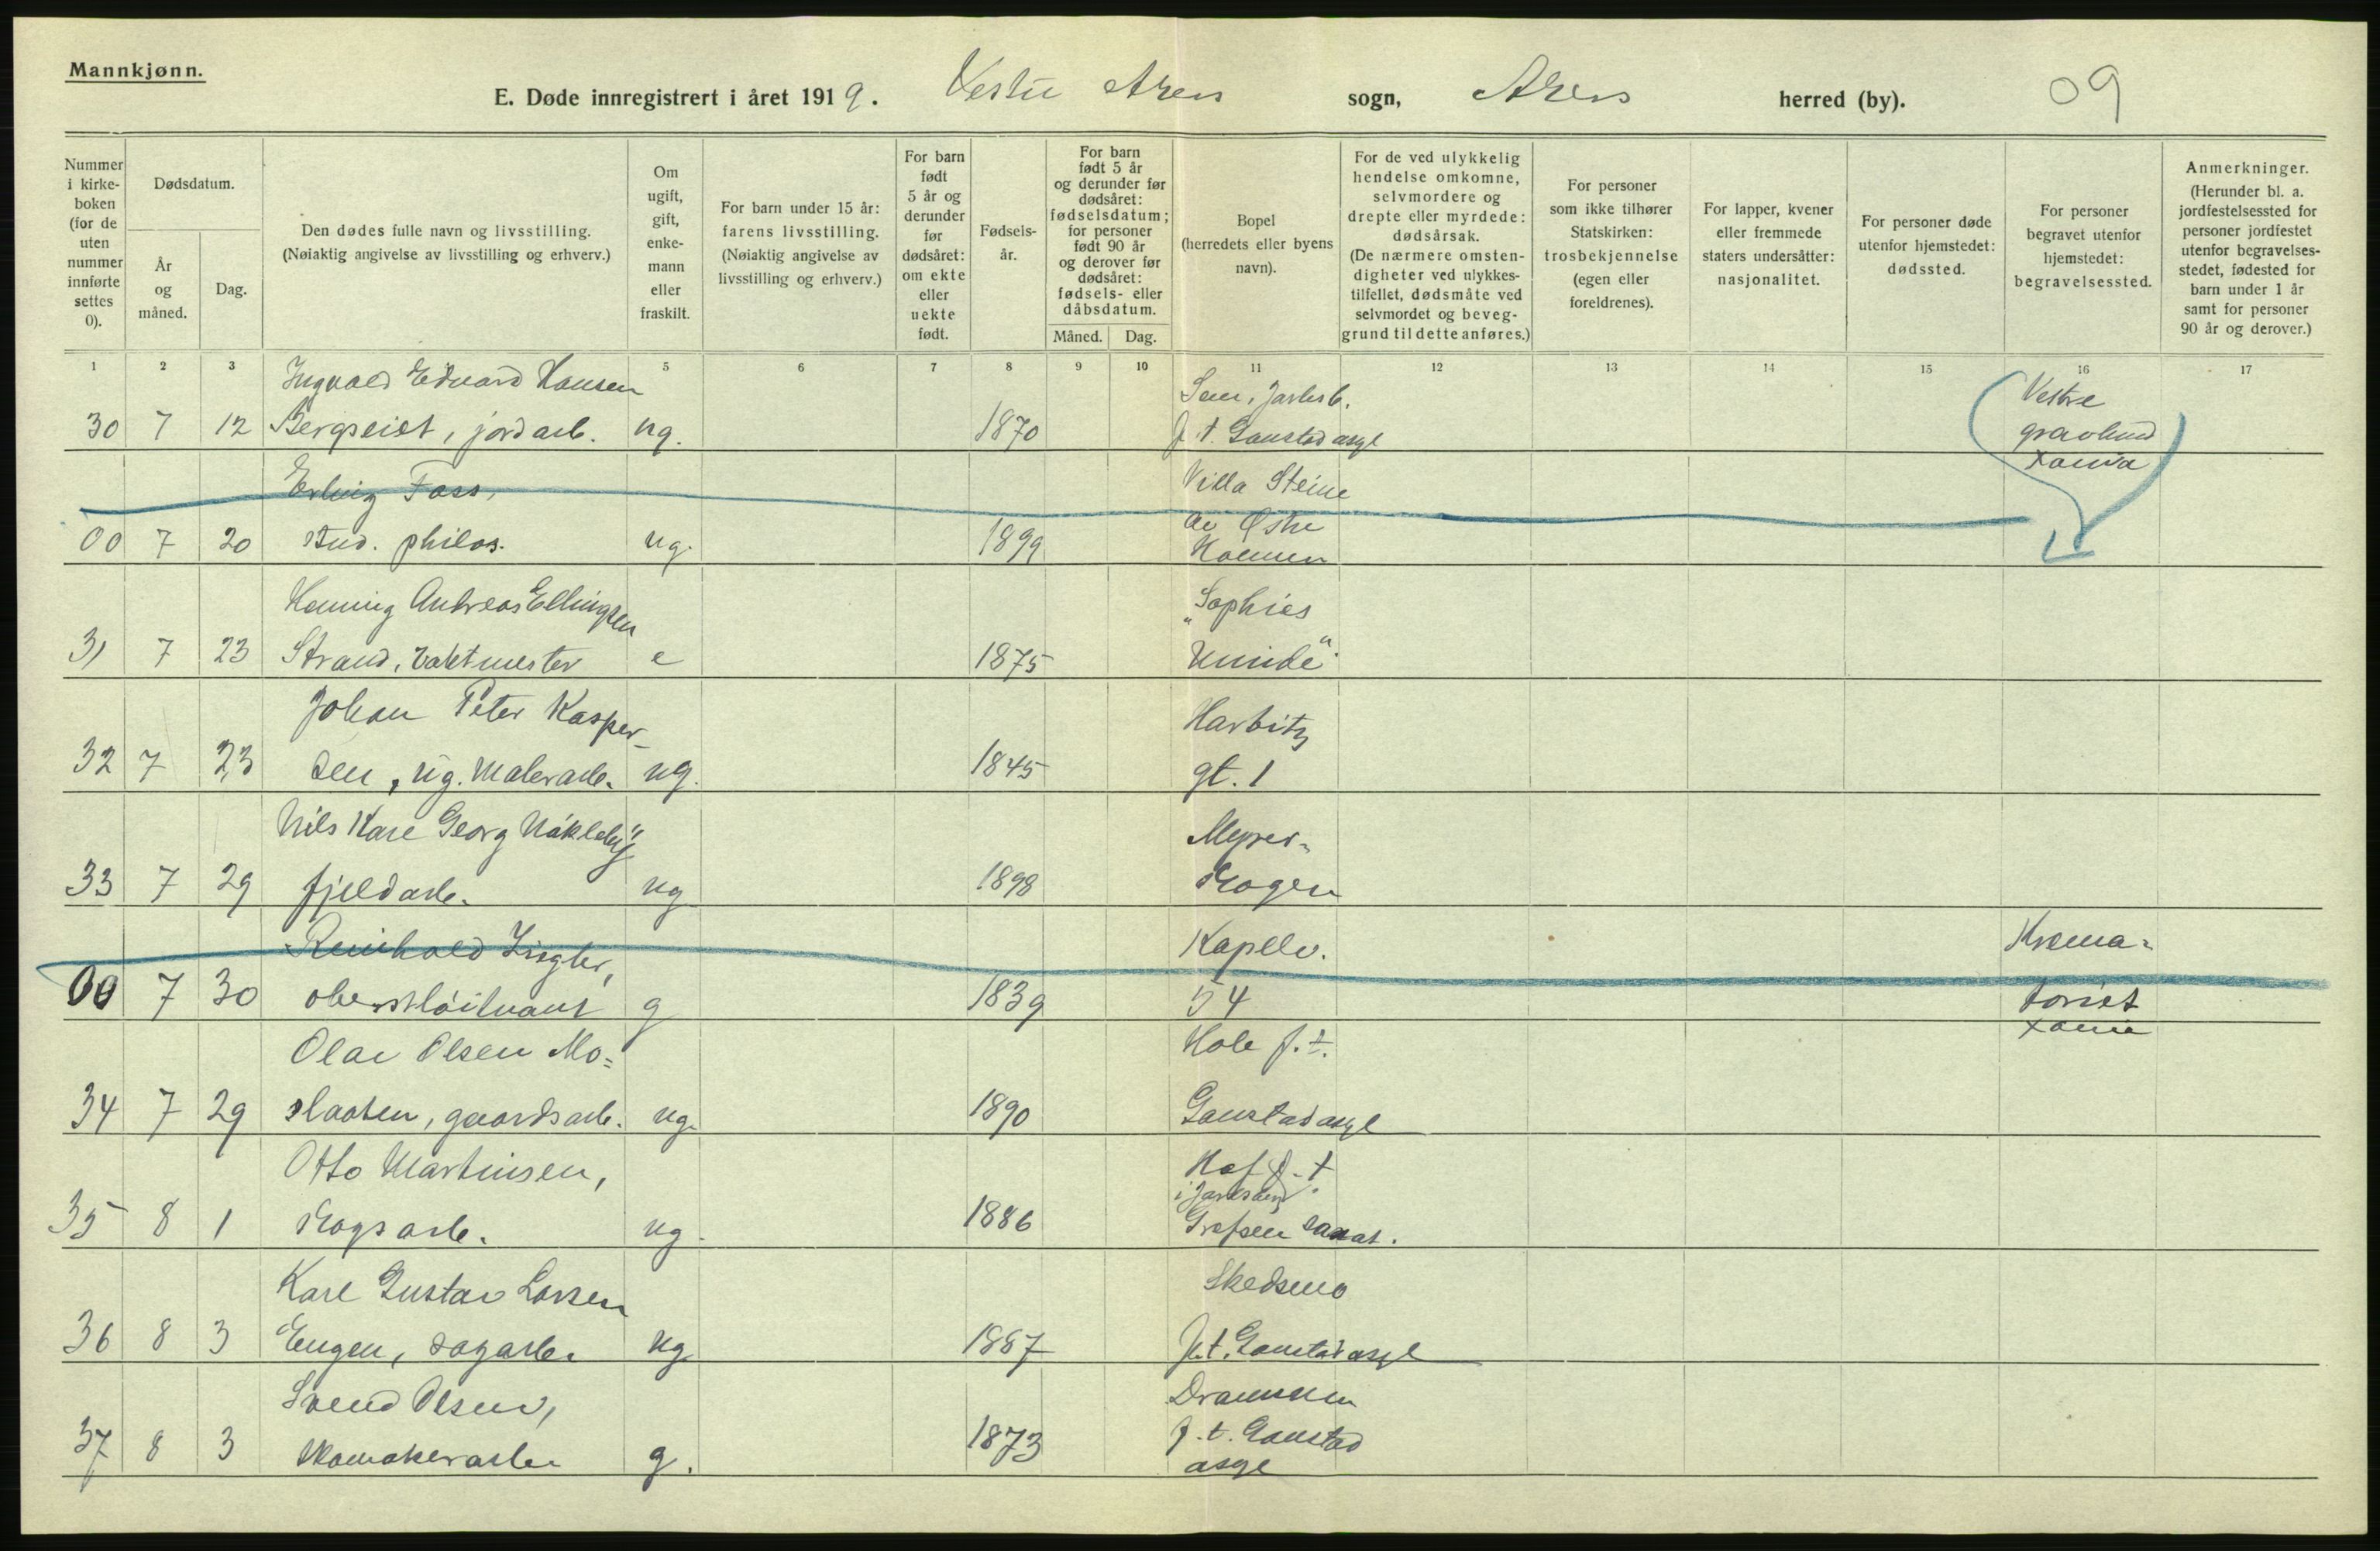 Mannkjønn.
E. Døde innregistrert i året 1919. Vestre Aker sogn, Aker herred (by). 09
Nummer i kirke- boken (for de uten nummer innførte settes 0).
Dødsdatum.
År og måned.
Dag.
Den dødes fulle navn og livsstilling. (Nøiaktig angivelse av livsstilling og erhverv.)
Om ugift, gift, enke- mann eller fraskilt.
For barn under 15 år: farens livsstilling. (Nøiaktig angivelse av livsstilling og erhverv.)
For barn født 5 år og derunder før dødsåret: om ekte eller uekte født.
Fødsels- år.
For barn født 5 år og derunder før dødsåret: fødselsdatum; for personer født 90 år og derover før dødsåret: fødsels- eller dåbsdatum.
Måned. Dag.
Bopel (herredets eller byens navn).
For de ved ulykkelig hendelse omkomne, selvmordere og drepte eller myrdede: dødsårsak. (De nærmere omsten- digheter ved ulykkes- tilfellet, dødsmåte ved selvmordet og beveg- grund til dette anføres.)
For personer som ikke tilhører Statskirken: trosbekjennelse (egen eller foreldrenes).
For lapper, kvener eller fremmede staters undersåtter: nasjonalitet.
For personer døde utenfor hjemstedet: dødssted.
For personer begravet utenfor hjemstedet: begravelsessted.
Anmerkninger. (Herunder bl. a. jordfestelsessted for personer jordfestet utenfor begravelses- stedet, fødested for barn under 1 år samt for personer 90 år og derover.)
1 2 3 5 6 7 8 9 10 11 12 13 14 15 16 17
Ingvald Edvard Hansen Sem, Jarlsb. Vestre
30 7 12 Bergseiet, jordarb. ug. 1870 f. t. Gaustad asyl gravlund
Xania
Erling Foss, Villa Steine
00 7 20 stud. philos. ug. 1899 av Østre
Holmen
Henning Andreas Ellingsen "Sophies
31 7 23 Strand, vaktmester e 1875 Minde"
Johan Peter Kasper- Harbitz
32 7 23 sen, ug. Malerarb. ug. 1845 gt. 1
Nils Kare Georg Nøkleby Myrer-
33 7 29 fjeldarb. ug 1898 skogen
Reinhold Ziegler, Kapellv. Krema-
00 7 30 oberstløitnant g 1839 54 toriet
Xania
Olav Olsen Mo- Hole f. t.
34 7 29 slaaten, gaardsarb. ug. 1890 Gaustad asyl
Otto Martinsen, Hof f. t
i Jarlsberg
35 8 1 skogsarb. ug. 1886 Grefsen sanat.
Karl Gustav Larsen Skedsmo
36 8 3 Engen, sagarb. ug 1887 f. t. Gaustad asyl
Svend Olsen, Drammen
37 8 3 skomakerarb. g. 1873 f. t. Gaustad
asyl